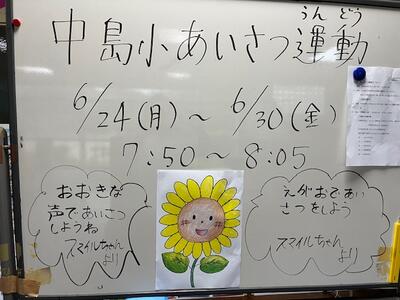 うんどう
中島小あいさつ運動
6/24(月)～6/30(金)
7:50～8:05
おおきな
声であいさつ
しようね
スマイルちゃん
より
えがおであい
さつをしよう
スマイルちゃん
より